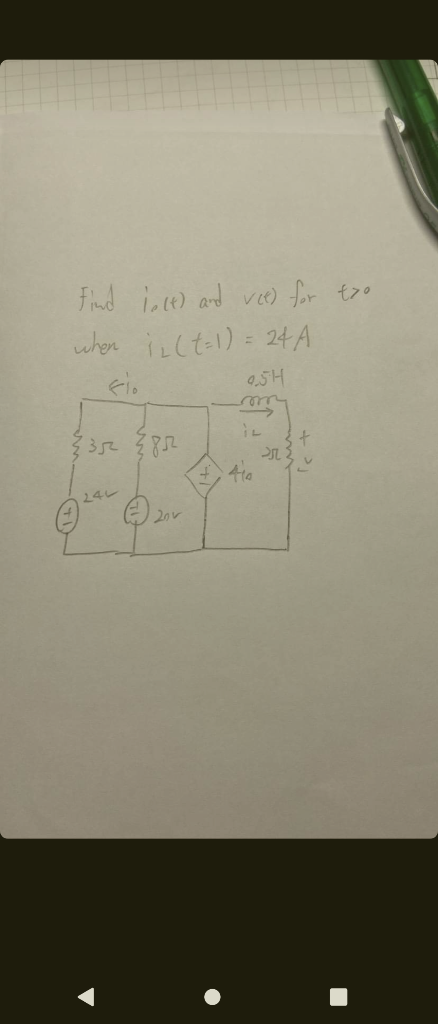 Find i₀(t) and v(t) for t>0
when i_L(t=1) = 24A
0.5H
←i₀
i_L
3Ω
8Ω
4i₀
2Ω
+
v
-
24v
20v